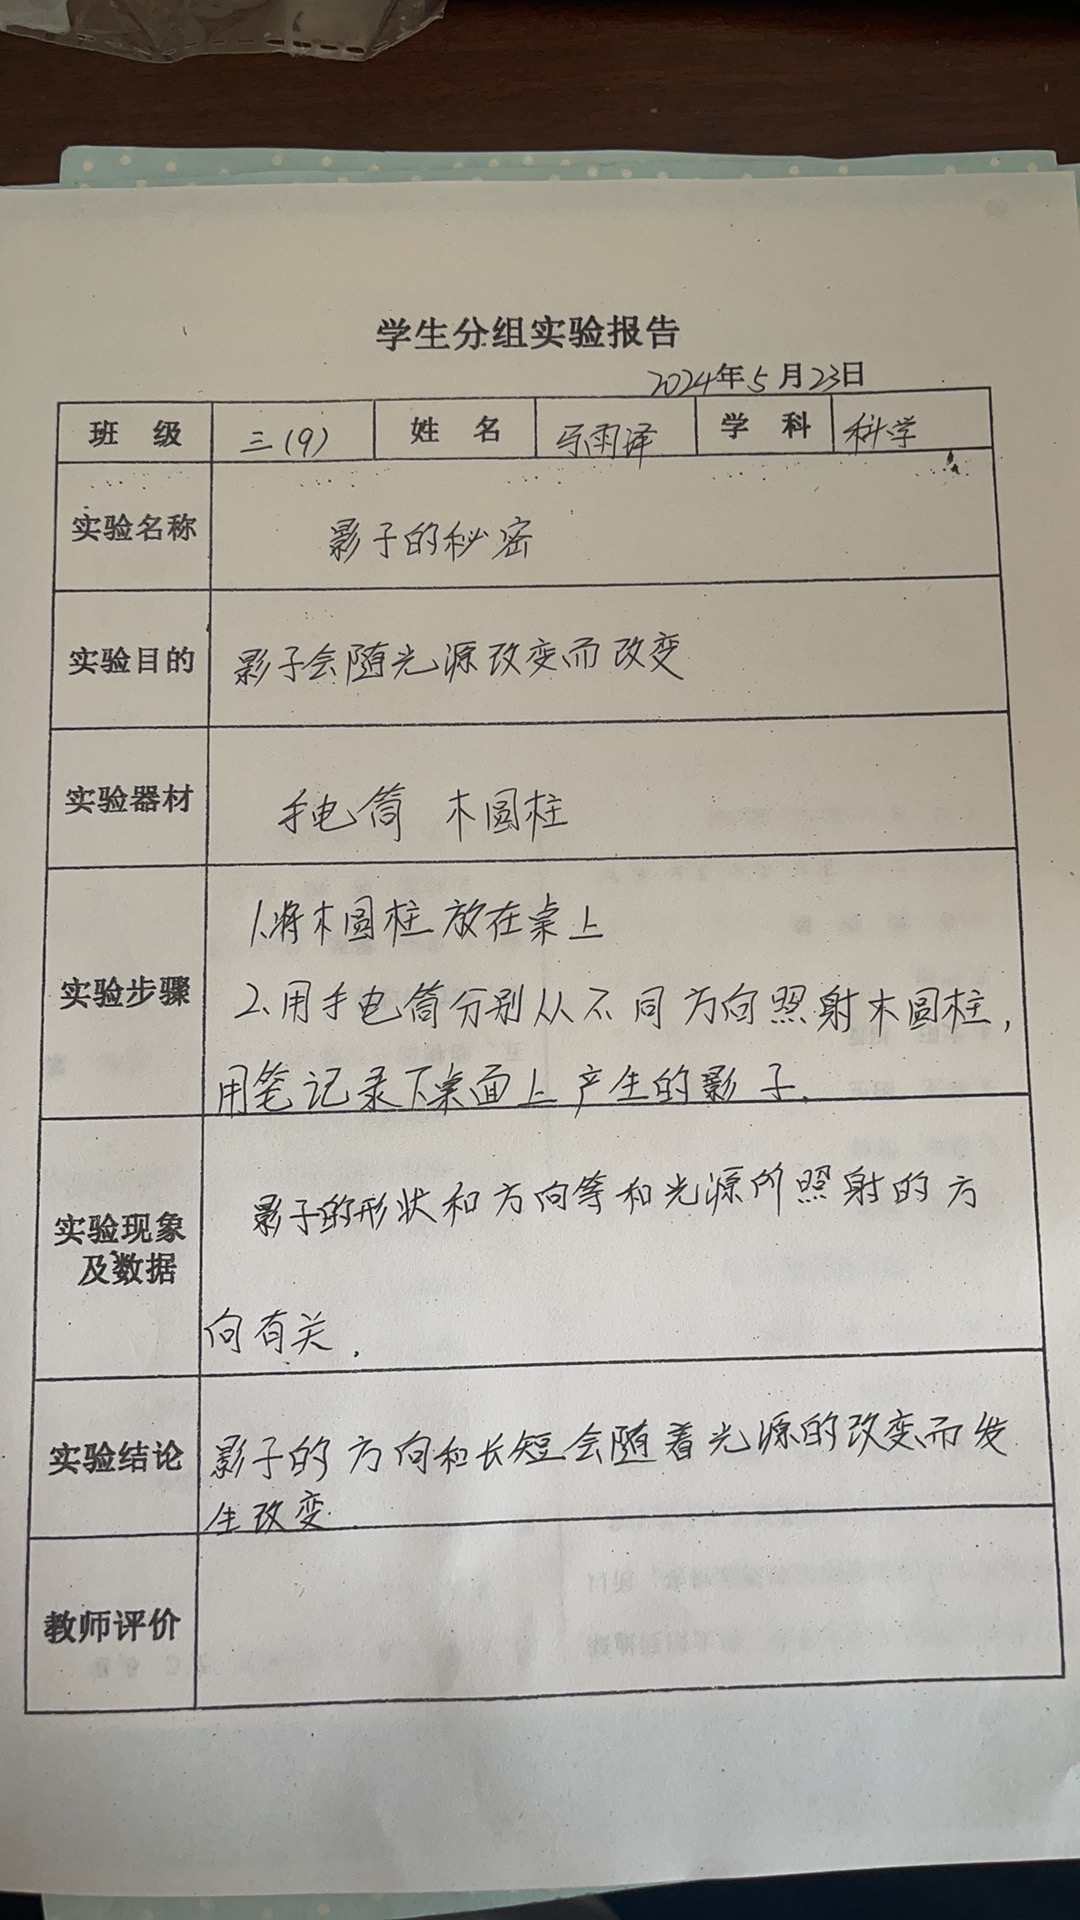 学生分组实验报告
2024年5月23日
班 级 三(9) 姓 名 马雨泽 学 科 科学
实验名称 影子的秘密
实验目的 影子会随光源改变而改变
实验器材 手电筒 木圆柱
1.将木圆柱放在桌上
实验步骤 2.用手电筒分别从不同方向照射木圆柱,
用笔记录下桌面上产生的影子.
影子的形状和方向等和光源所照射的方
实验现象
及数据
向有关.
实验结论 影子的方向和长短会随着光源的改变而发
生改变.
教师评价